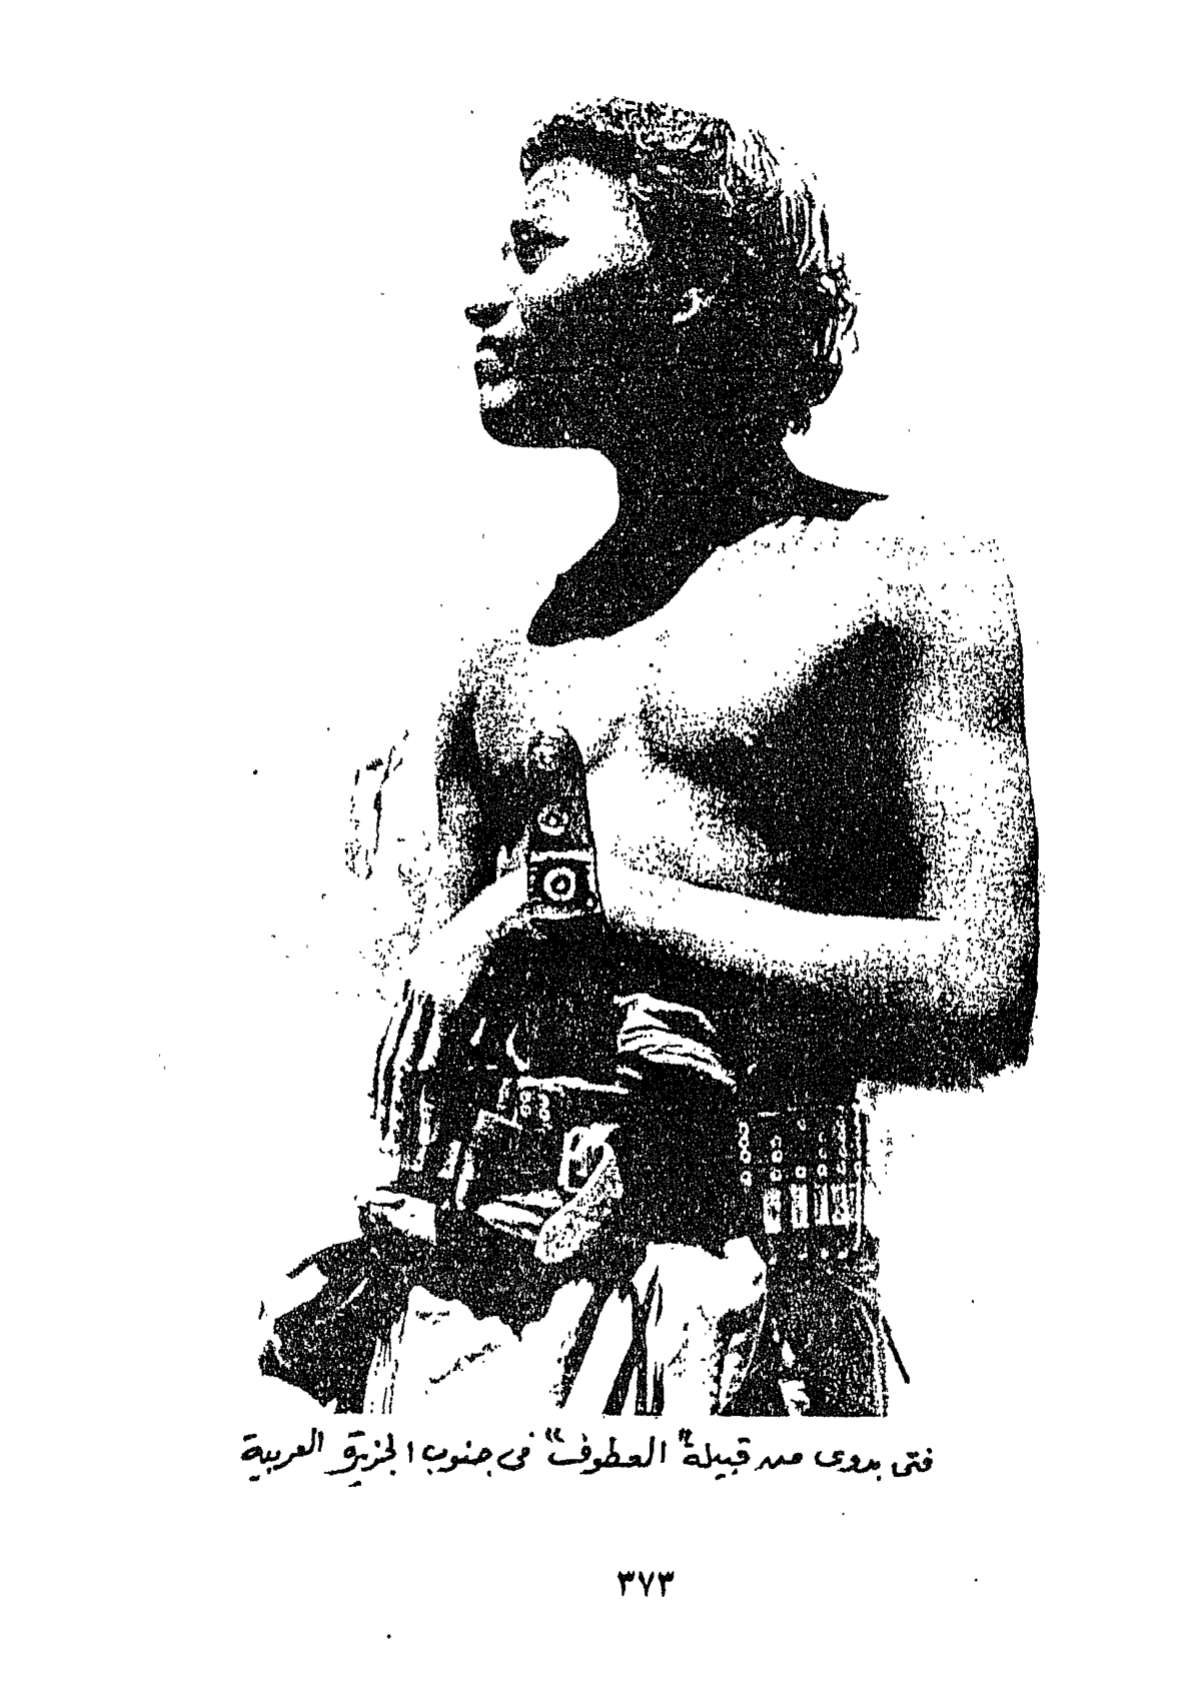 فتى بدوى من قبيلة "العطوف" فى جنوب الجزيرة العربية
٣٧٣